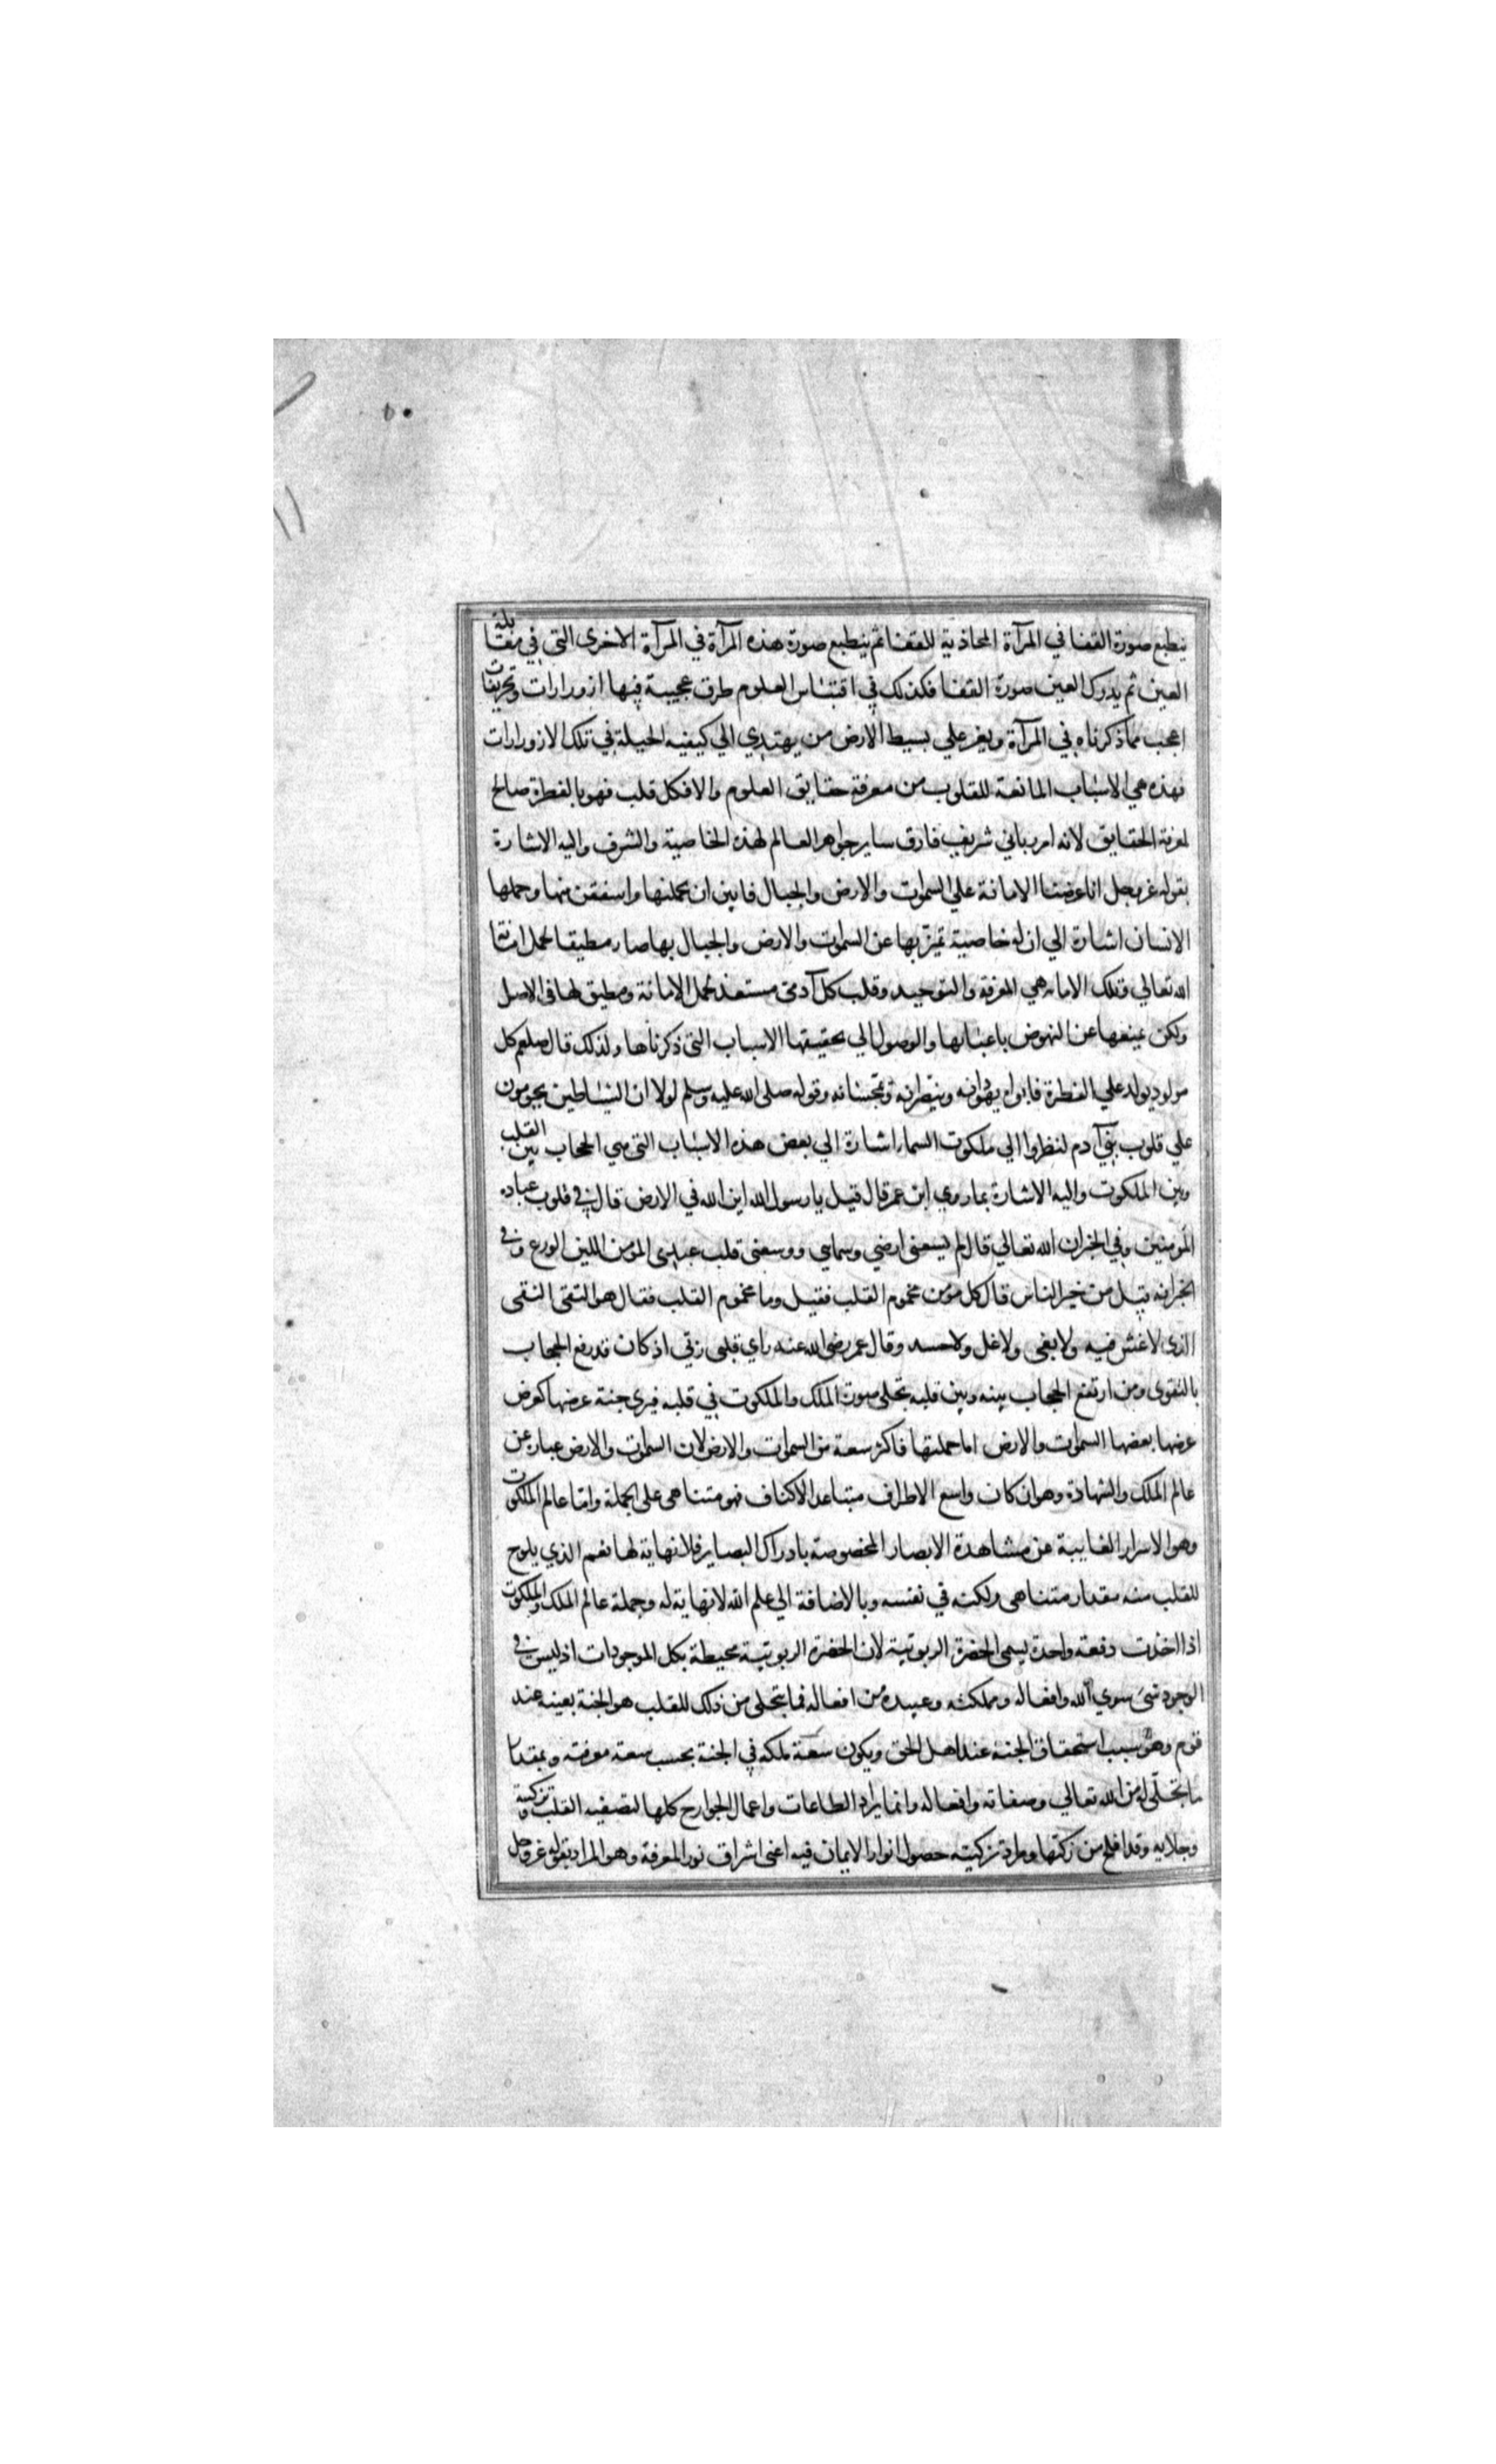 ينطبع صورة القفا في المرآة المحاذية للقفا ثم ينطبع صورة هذه المرآة في المرآة الاخرى التي في مقابلة
العين ثم يدرك العين صورة القفا فكذلك في اقتناس العلوم طرق عجيبة فيها ازورارات وتحريفات
اعجب مما ذكرناه في المرآة ويعز علي بسيط الارض من يهتدي الي كيفيه الحيلة في تلك الازورارات
فهذه هي الاسباب المانعة للقلوب من معرفة حقايق العلوم والا فكل قلب فهو بالفطرة صالح
لمعرفة الحقايق لانه امر رباني شريف فارق ساير جواهر العالم لهذه الخاصية والشرف واليه الاشارة
بقوله عز وجل انا عرضنا الامانة علي السموات والارض والجبال فابين ان يحملنها واشفقن منها وحملها
الانسان اشارة الي ان له خاصية تميز بها عن السموات والارض والجبال بها صار مطيقا لحمل امانة
الله تعالي وتلك الامانه هي المعرفة والتوحيد وقلب كل آدمى مستعد لحمل الامانة ومطيق لها في الاصل
ولكن يمنعها عن النهوض باعبائها والوصول الي تحقيقها الاسباب التى ذكرناها ولذلك قال صلعم كل
مولود يولد علي الفطرة فابواه يهودانه وينصرانه ويمجسانه وقوله صلى الله عليه وسلم لولا ان الشياطين يحومون
علي قلوب بني آدم لنظروا الي ملكوت السما اشارة الي بعض هذه الاسباب التى هي الحجاب بين القلب
وبين الملكوت واليه الاشارة بما روي ابن عمر قال قيل يا رسول الله اين الله في الارض قال في قلوب عباده
المومنين وفي الخبر ان الله تعالي قال لم يسعنى ارضي وسمايى ووسعنى قلب عبدى المؤمن اللين الورع وفي
الخبر انه قيل من خير الناس قال كل مؤمن مخموم القلب فقيل وما مخموم القلب فقال هو التقى النقى
الذى لا غش فيه ولا بغى ولا غل ولا حسد وقال عمر رضى الله عنه راي قلبى ربي اذ كان قد رفع الحجاب
بالتقوى ومن ارتفع الحجاب بينه وبين قلبه تجلى صورة الملك والملكوت في قلبه فيرى جنة عرضها كعرض
عرضها بعضها السموات والارض اما جملتها فاكثر سعة من السموات والارض لان السموات والارض عباره عن
عالم الملك والشهادة وهو ان كان واسع الاطراف متباعد الاكناف فهو متناهى على الجملة واما عالم الملكوت
وهو الاسرار الغايبة عن مشاهدة الابصار المخصوصة بادراك البصاير فلا نهاية لها نعم الذي يلوح
للقلب منه مقدار متناهى ولكنه في نفسه وبالاضافة الي علم الله لا نهاية له وجملة عالم الملك والملكوت
اذا اخذت دفعة واحدة يسمى الحضرة الربوبية لان الحضرة الربوبية محيطة بكل الموجودات اذ ليس في
الوجود شئ سوي الله وافعاله ومملكته وعبيده من افعاله فما يتجلى من ذلك للقلب هو الجنة بعينه عند
قوم وهو سبب استحقاق الجنة عند اهل الحق ويكون سعة ملكه في الجنة بحسب سعة معرفته وبمقدار
ما يتجلى له من الله تعالي وصفاته وافعاله وانما يراد الطاعات واعمال الجوارح كلها لتصفيه القلب وتزكيته
وجلايه وقد افلح من زكيها ومراد تزكيته حصول انوار الايمان فيه اعنى اشراق نور المعرفة وهو المراد بقوله عز وجل